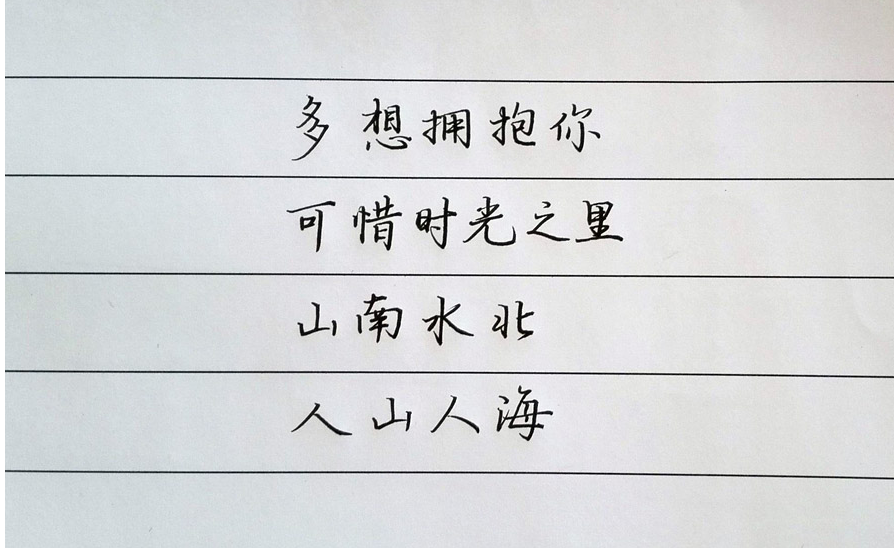 多想拥抱你
可惜时光之里
山南水北
人山人海